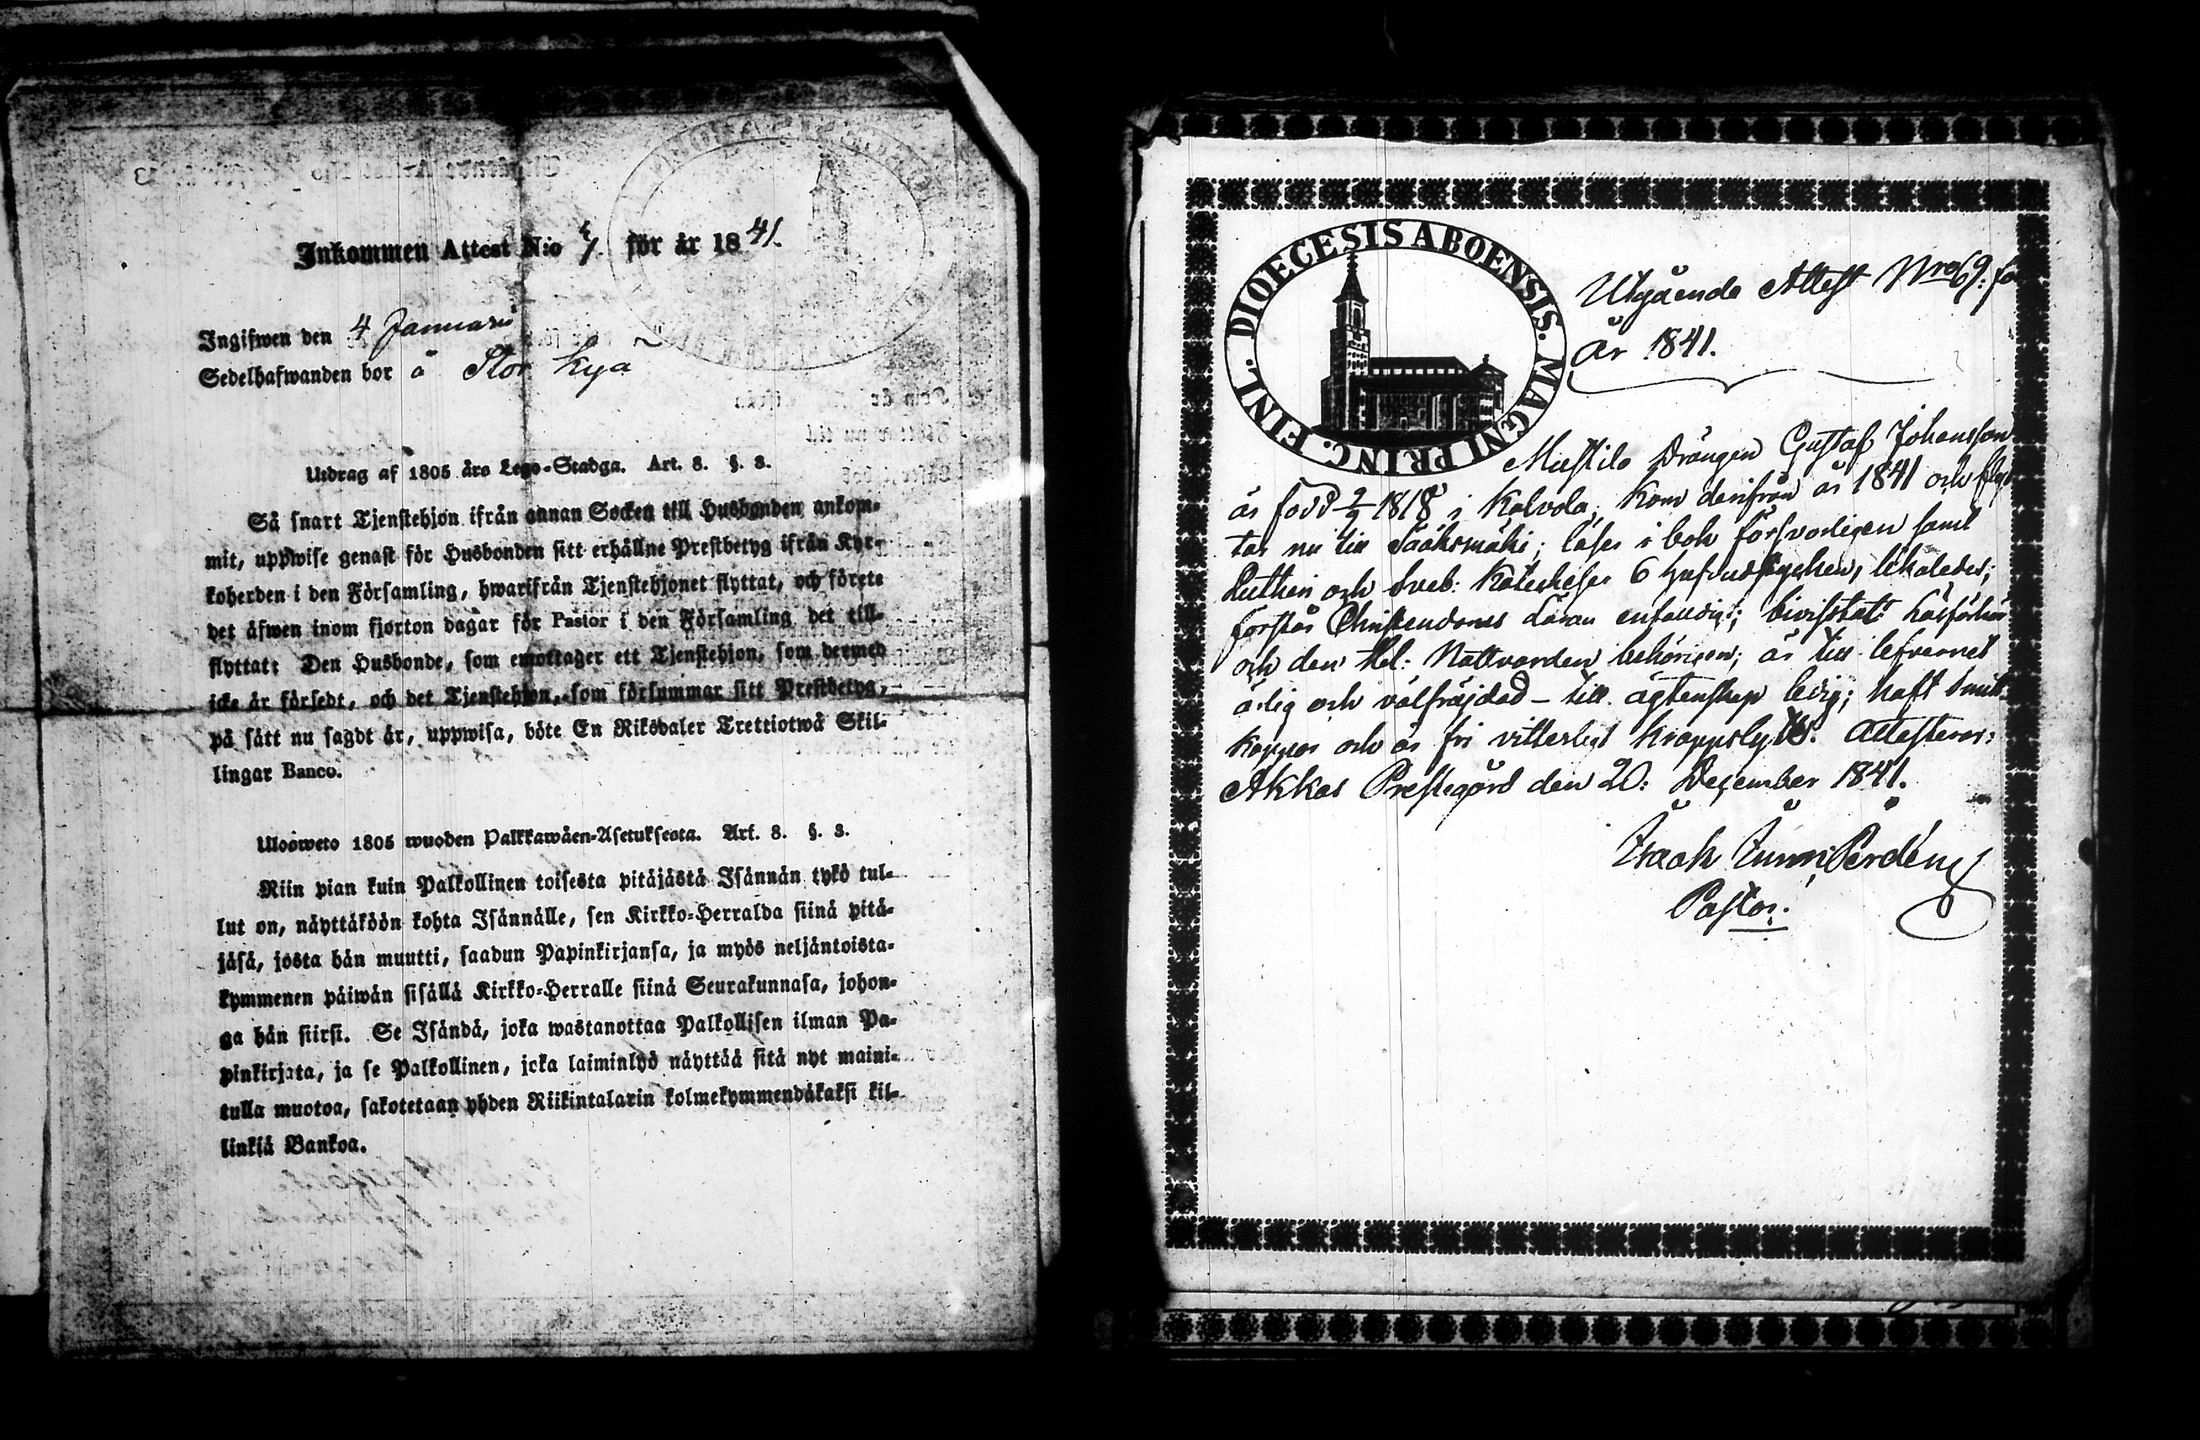 Inkommen Attest N:o 7. för år 1841.
Ingifwen den 4 Januari
Sedelhafwanden bor å Stor Kya
Utdrag af 1805 års Lego-Stadga. Art. 8. §. 3.
Så snart Tjenstehjon ifrån annan Socken till Husbonden ankom-
mit, uppwise genast för Husbonden sitt erhållne Prestbetyg ifrån Kyr-
koherden i den Församling, hwarifrån Tjenstehjonet flyttat, och förete
det äfwen inom fjorton dagar för Pastor i den Församling det till-
flyttat: Den Husbonde, som emottager ett Tjenstehjon, som dermed
icke är försedt, och det Tjenstehjon, som försummar sitt Prestbetyg,
på sätt nu sagdt är, uppwisa, böte En Riksdaler Trettiotwå Skil-
lingar Banco.
Ulosweto 1805 wuoden Palkkawäen-Asetuksesta. Art. 8. §. 3.
Niin pian kuin Palkollinen toisesta pitäjästä Isännän tykö tul-
lut on, näyttäköön kohta Isännälle, sen Kirkko-Herralda siinä pitä-
jäsä, josta hän muutti, saadun Papinkirjansa, ja myös neljäntoista-
kymmenen päiwän sisällä Kirkko-Herralle siinä Seurakunnasa, johon-
ga hän siirsi. Se Isändä, joka wastanottaa Palkollisen ilman Pa-
pinkirjata, ja se Palkollinen, joka laiminlyö näyttää sitä nyt maini-
tulla muotoa, sakotetaan yhden Riikintalarin kolmekymmendäkaksi kil-
linkiä Bankoa.
DIOECESIS ABOENSIS. MAGNI PRINC. FINL.
Utgående Attest Nro 69. för
År 1841.
Mustila Drängen Gustaf Johansson
är född 2/7 1818 i Kalvola, kom derifrån år 1841 och flyt-
tar nu till Sääksmäki; läser i bok försvarligen samt
Lutheri och Sveb: Kateheser 6 hufvudstycken, likaledes;
förstår Christendomens läran enfaldigt; bivistat Läsförhör
och den Hel: Nattvarden behörigen; är till lefvernet
ärlig och välfräjdad – till ägtenskap ledig; haft
koppor och är fri vitterligt kroppslyte. Attesterar:
Akkas Prestegård den 20: December 1841.
Isaak Perdén
Pastor.